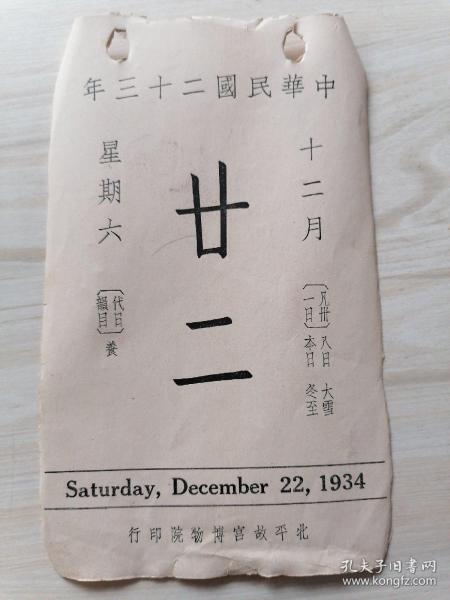 中華民國二十三年
十二月
〔凡卅一日〕
八日 大雪
本日 冬至
廿二
星期六
〔代日韻目〕養
Saturday, December 22, 1934
北平故宮博物院印行
孔夫子旧书网
www.kongfz.com